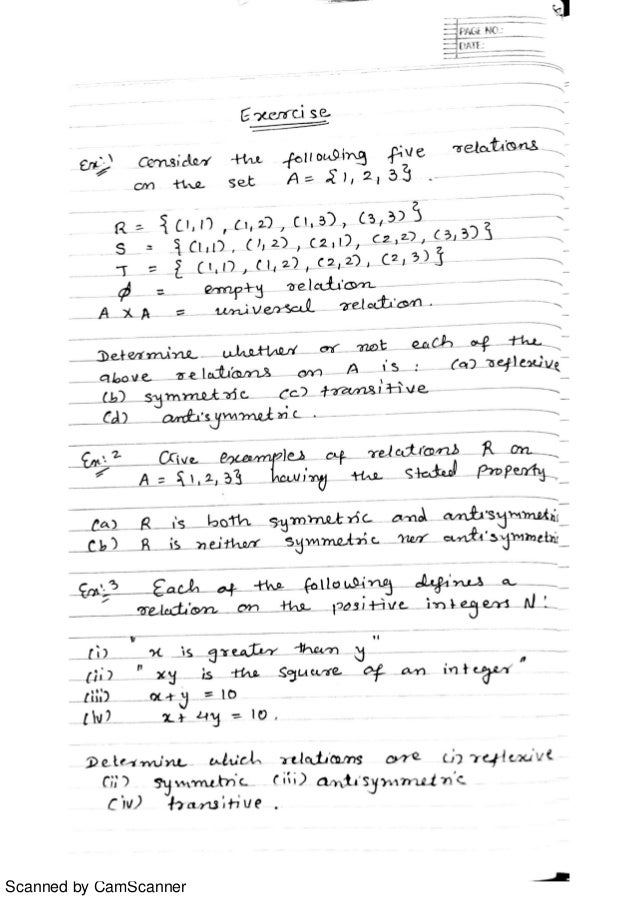 PAGE NO.:
DATE:
Exercise
Ex:1 Consider the following five relations
on the set A = {1, 2, 3}.
R = {(1,1), (1,2), (1,3), (3,3)}
S = {(1,1), (1,2), (2,1), (2,2), (3,3)}
T = {(1,1), (1,2), (2,2), (2,3)}
ϕ = empty relation
A X A = universal relation.
Determine whether or not each of the
above relations on A is : (a) reflexive
(b) symmetric (c) transitive
(d) antisymmetric.
Ex:2 Give examples of relations R on
A = {1, 2, 3} having the stated property
(a) R is both symmetric and antisymmetric
(b) R is neither symmetric ner antisymmetric
Ex:3 Each of the following defines a
relation on the positive integers N:
(i) "x is greater than y"
(ii) "xy is the square of an integer"
(iii) x+y = 10
(iv) x+ 4y = 10.
Determine which relations are (i) reflexive
(ii) symmetric (iii) antisymmetric
(iv) transitive.
Scanned by CamScanner